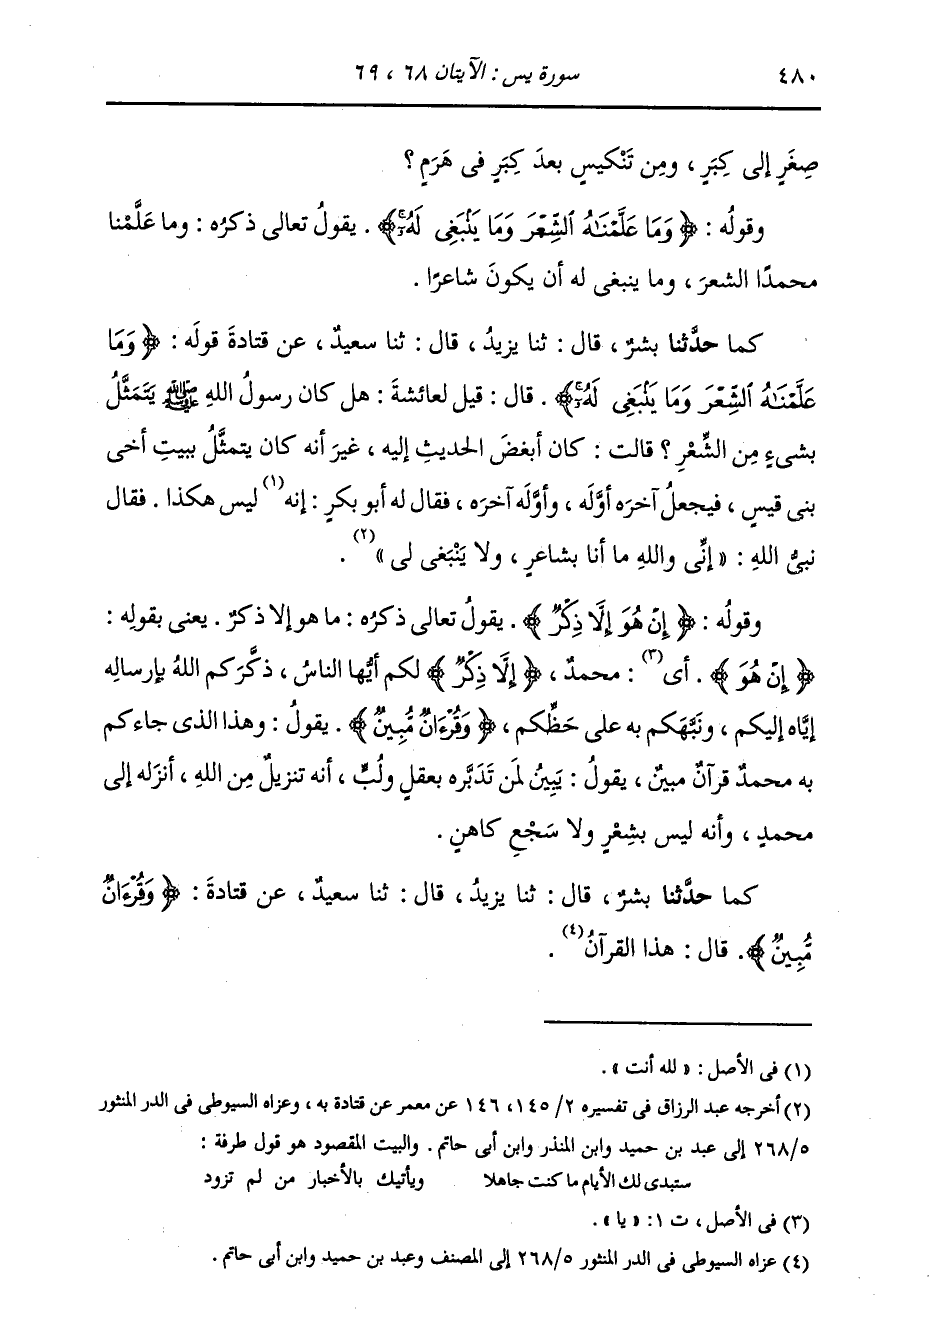 ٤٨٠ سورة يس : الآيتان ٦٨ ، ٦٩
صِغَرٍ إلى كِبَرٍ ، ومِن تَنْكيسٍ بعدَ كِبَرٍ فى هَرَمٍ ؟
وقولُه : ﴿ وَمَا عَلَّمْنَٰهُ ٱلشِّعْرَ وَمَا يَنۢبَغِى لَهُۥٓ ﴾ . يقولُ تعالى ذكرُه : وما علَّمْنا
محمدًا الشعرَ ، وما ينبغى له أن يكونَ شاعرًا .
كما حدَّثنا بشرٌ ، قال : ثنا يزيدُ ، قال : ثنا سعيدٌ ، عن قتادةَ قولَه : ﴿ وَمَا
عَلَّمْنَٰهُ ٱلشِّعْرَ وَمَا يَنۢبَغِى لَهُۥٓ ﴾ . قال : قيل لعائشةَ : هل كان رسولُ اللهِ ﷺ يَتَمثَّلُ
بشىءٍ مِن الشِّعْرِ ؟ قالت : كان أبغضَ الحديثِ إليه ، غيرَ أنه كان يتمثَّلُ ببيتِ أخى
بنى قيسٍ ، فيجعلُ آخرَه أوَّلَه ، وأوَّلَه آخرَه ، فقال له أبو بكرٍ : إنه(١) ليس هكذا . فقال
نبىُّ اللهِ : « إنِّى واللهِ ما أنا بشاعرٍ ، ولا يَنْبَغى لى »(٢) .
وقولُه : ﴿ إِنْ هُوَ إِلَّا ذِكْرٌ ﴾ . يقولُ تعالى ذكرُه : ما هو إلا ذكرٌ . يعنى بقولِه :
﴿ إِنْ هُوَ ﴾ . أى(٣) : محمدٌ ، ﴿ إِلَّا ذِكْرٌ ﴾ لكم أيُّها الناسُ ، ذكَّرَكم اللهُ بإرسالِه
إيَّاه إليكم ، ونَبَّهَكم به على حَظِّكم ، ﴿ وَقُرْءَانٌ مُّبِينٌ ﴾ . يقولُ : وهذا الذى جاءكم
به محمدٌ قرآنٌ مبينٌ ، يقولُ : يَبِينُ لمَن تَدَبَّره بعقلٍ ولُبٍّ ، أنه تنزيلٌ مِن اللهِ ، أنزَله إلى
محمدٍ ، وأنه ليس بشِعْرٍ ولا سَجْعِ كاهنٍ .
كما حدَّثنا بشرٌ ، قال : ثنا يزيدُ ، قال : ثنا سعيدٌ ، عن قتادةَ : ﴿ وَقُرْءَانٌ
مُّبِينٌ ﴾ . قال : هذا القرآنُ(٤) .
(١) فى الأصل : « لله أنت » .
(٢) أخرجه عبد الرزاق فى تفسيره ٢/ ١٤٥، ١٤٦ عن معمر عن قتادة به ، وعزاه السيوطى فى الدر المنثور
٢٦٨/٥ إلى عبد بن حميد وابن المنذر وابن أبى حاتم . والبيت المقصود هو قول طرفة :
ستبدى لك الأيام ما كنت جاهلا ويأتيك بالأخبار من لم تزود
(٣) فى الأصل ، ت ١: « يا » .
(٤) عزاه السيوطى فى الدر المنثور ٢٦٨/٥ إلى المصنف وعبد بن حميد وابن أبى حاتم .